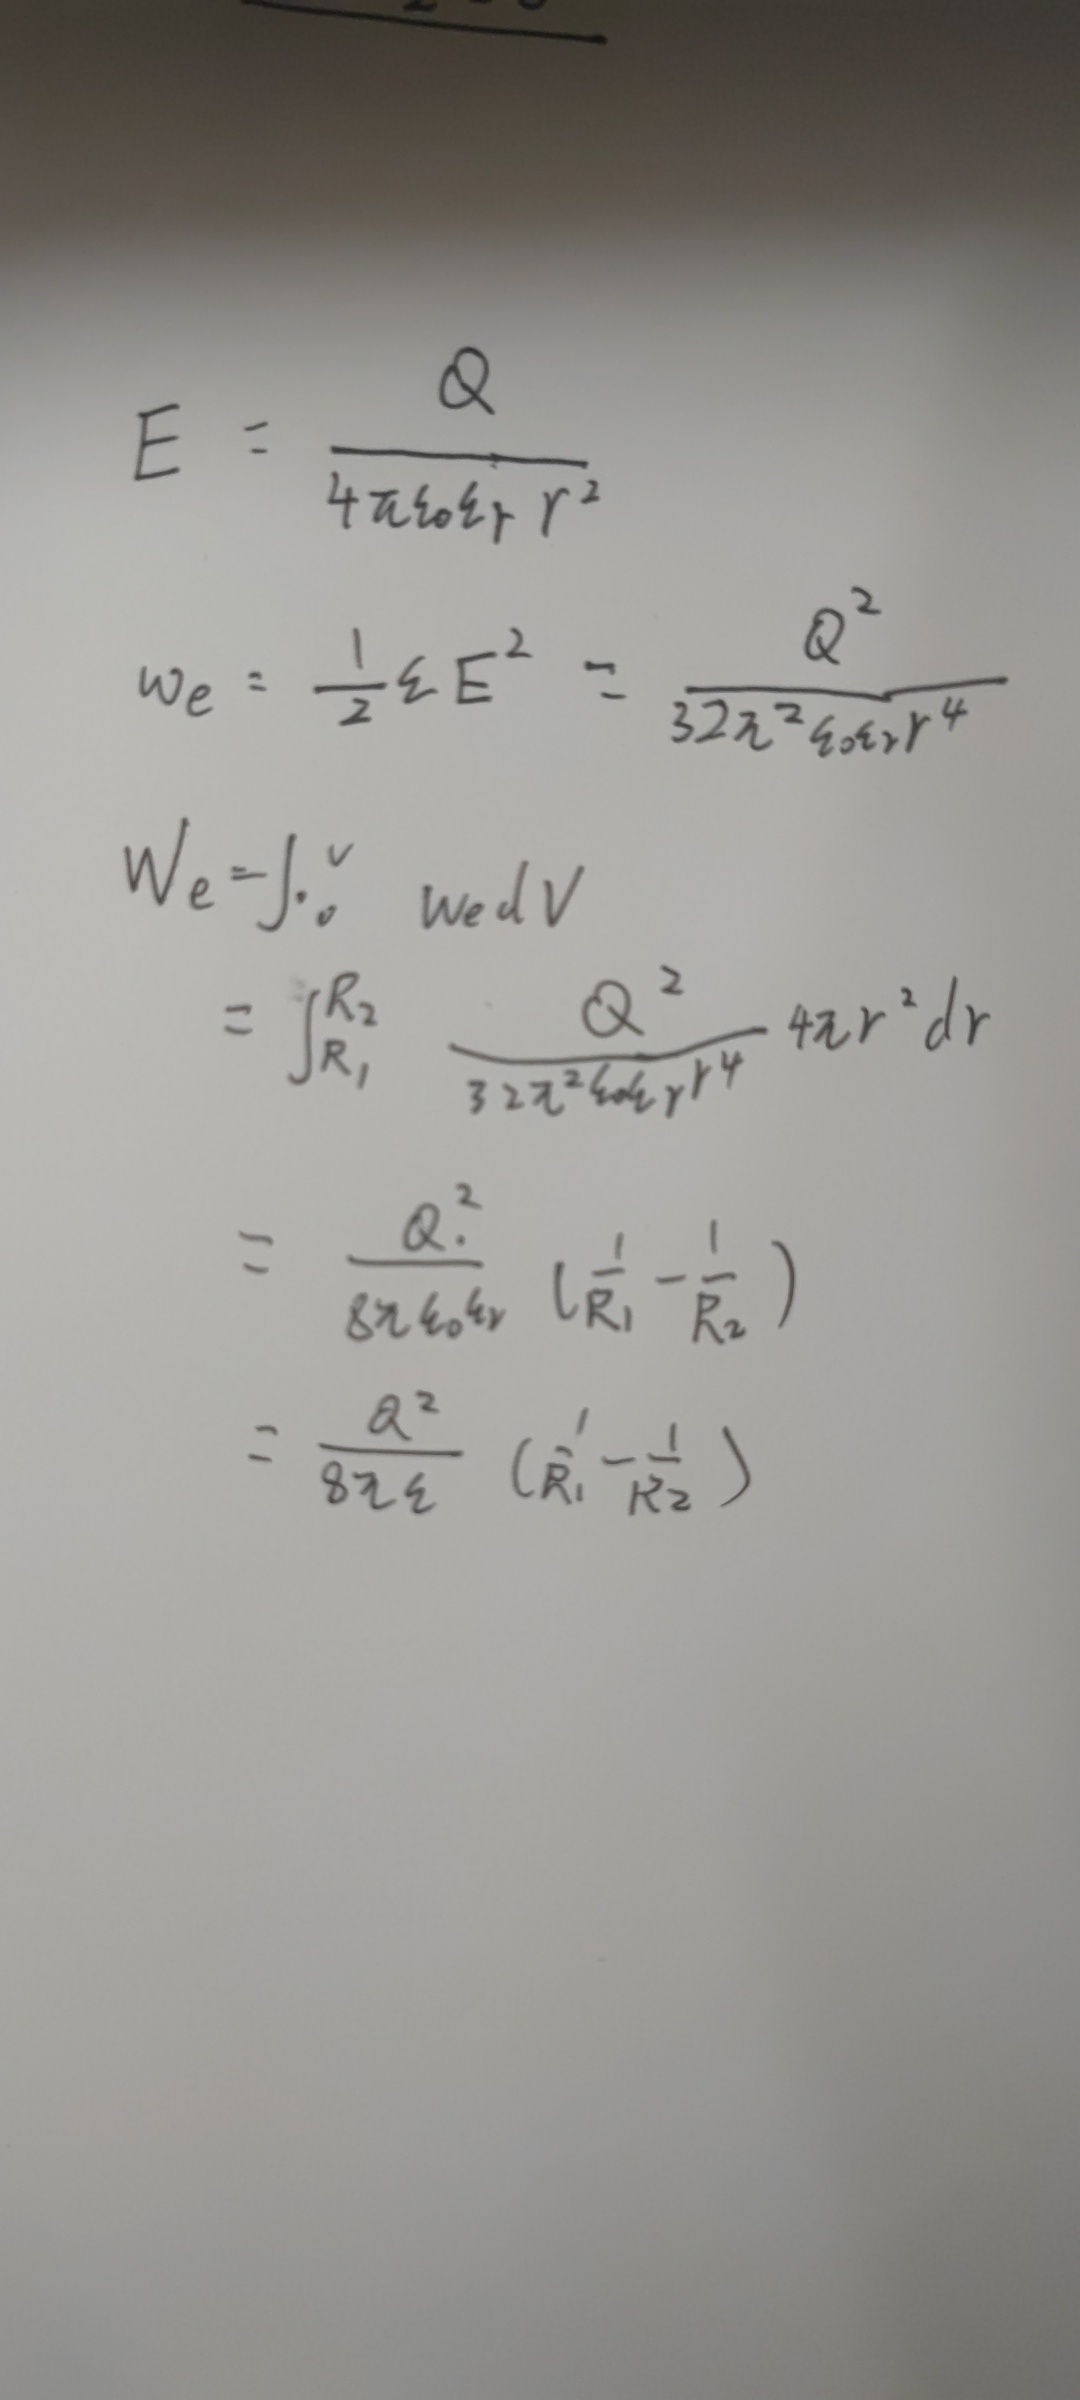 E = Q / (4πε₀εᵣ r²)
wₑ = 1/2 ε E² = Q² / (32π²ε₀εᵣr⁴)
Wₑ = ∫₀ⱽ wₑ dV
= ∫_{R₁}^{R₂} Q² / (32π²ε₀εᵣr⁴) 4πr²dr
= Q² / (8πε₀εᵣ) (1/R₁ − 1/R₂)
= Q² / (8πε) (1/R₁ − 1/R₂)